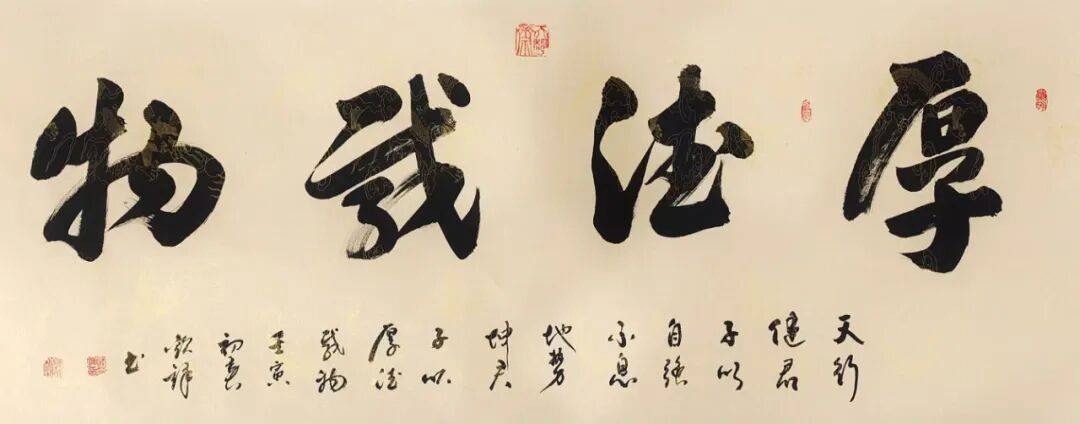 厚德载物
天行
健君
子以
自强
不息
地势
坤君
子以
厚德
载物
壬寅
初春
书